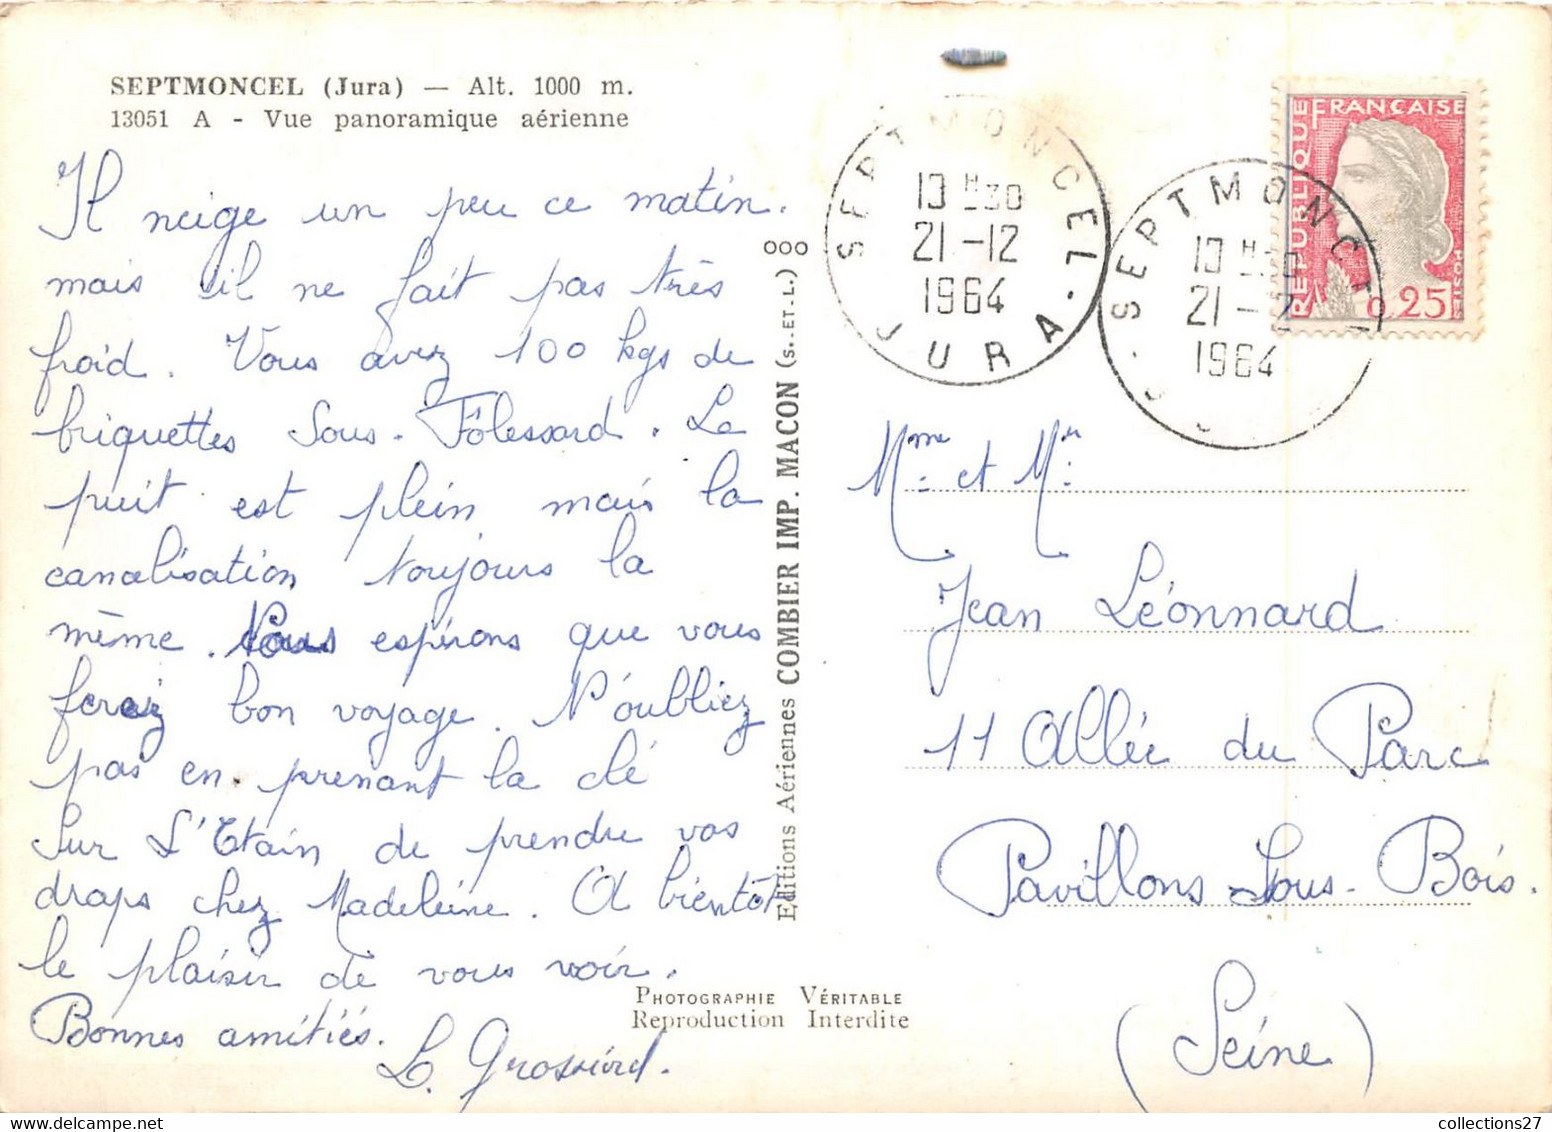 SEPTMONCEL (Jura) — Alt. 1000 m.
13051 A - Vue panoramique aérienne
Il neige un peu ce matin.
mais il ne fait pas très
froid. Vous avez 100 kgs de
briquettes Sous-Fôlessard. Le
puit est plein mais la
canalisation toujours la
même. Nous espérons que vous
ferez bon voyage. N'oubliez
pas en prenant la clé
sur L'Etain de prendre vos
draps chez Madeleine. A bientôt
le plaisir de vous voir.
Bonnes amitiés.
L. Grossiord.
Editions Aériennes COMBIER IMP. MACON (S.-ET-L.) ooo
PHOTOGRAPHIE VÉRITABLE
Reproduction Interdite
SEPTMONCEL
13 H30
21-12
1964
JURA
SEPTMONCEL
13 H30
21-12
1964
RÉPUBLIQUE FRANÇAISE
POSTES
0,25
Mme et Mr
Jean Léonnard
11 Allée du Parc
Pavillons-Sous-Bois.
(Seine)
collections27